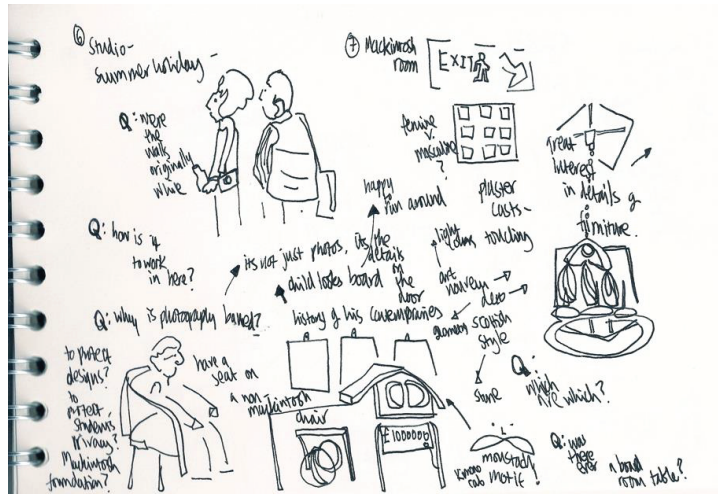 ⑥ Studio -
Summer holiday -
Q: were
the
walls
originally
white
Q: how is it
to work
in here?
Q: why is photography banned?
to protect
designs?
to
protect
students
privacy?
Mackintosh
foundation?
have a
seat on
a non
mackintosh
chair
⑦ Mackintosh
room
EXIT
feminine
v.
masculine
?
happy
run around
its not just photos, its the
details
on
the
door
child looks bored
history of his contemporaries
plaster
casts -
touching
light
art
nouveau
deco
scottish
style
stone
great
interest
in details of
furniture.
Q:
which
are which?
Q: was
there
ever
a board
room table?
moustache
motif!
kimono
£1000000